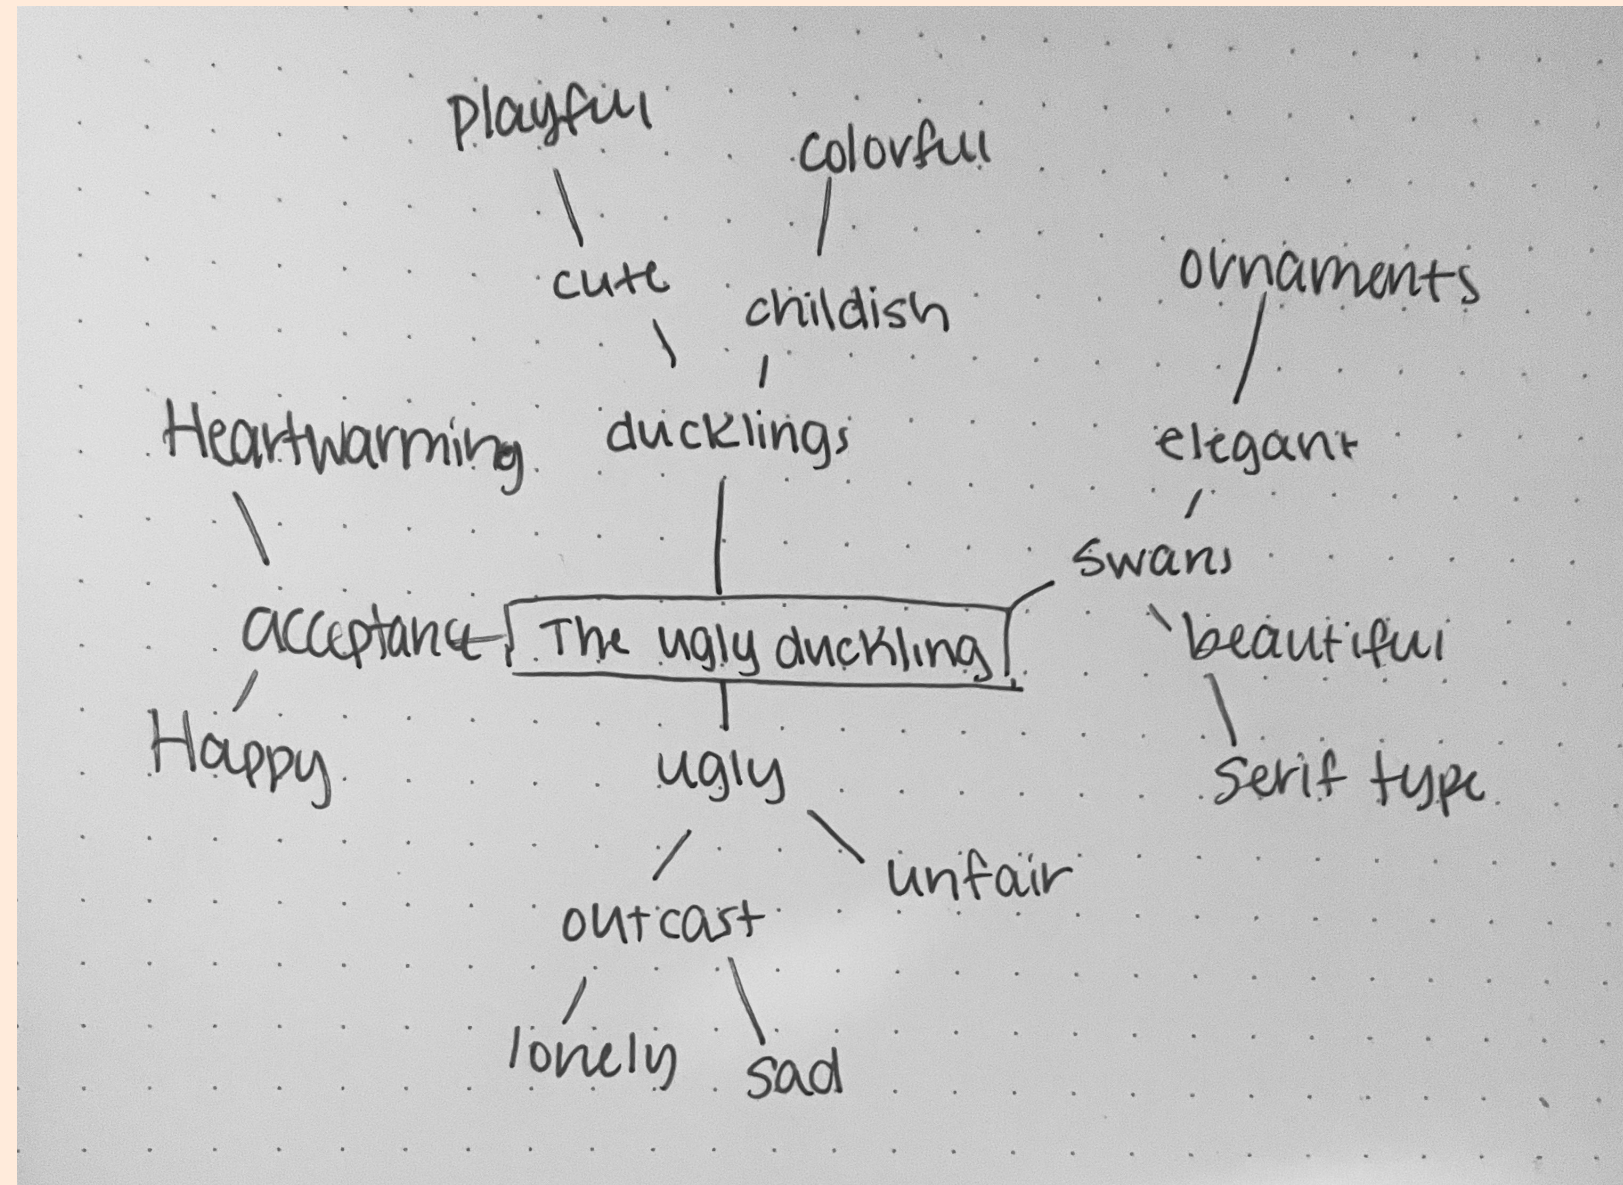 playful
colorful
ornaments
cute
childish
Heartwarming
ducklings
elegant
swans
acceptance
The ugly duckling
beautiful
Happy
ugly
serif type
unfair
outcast
lonely
sad